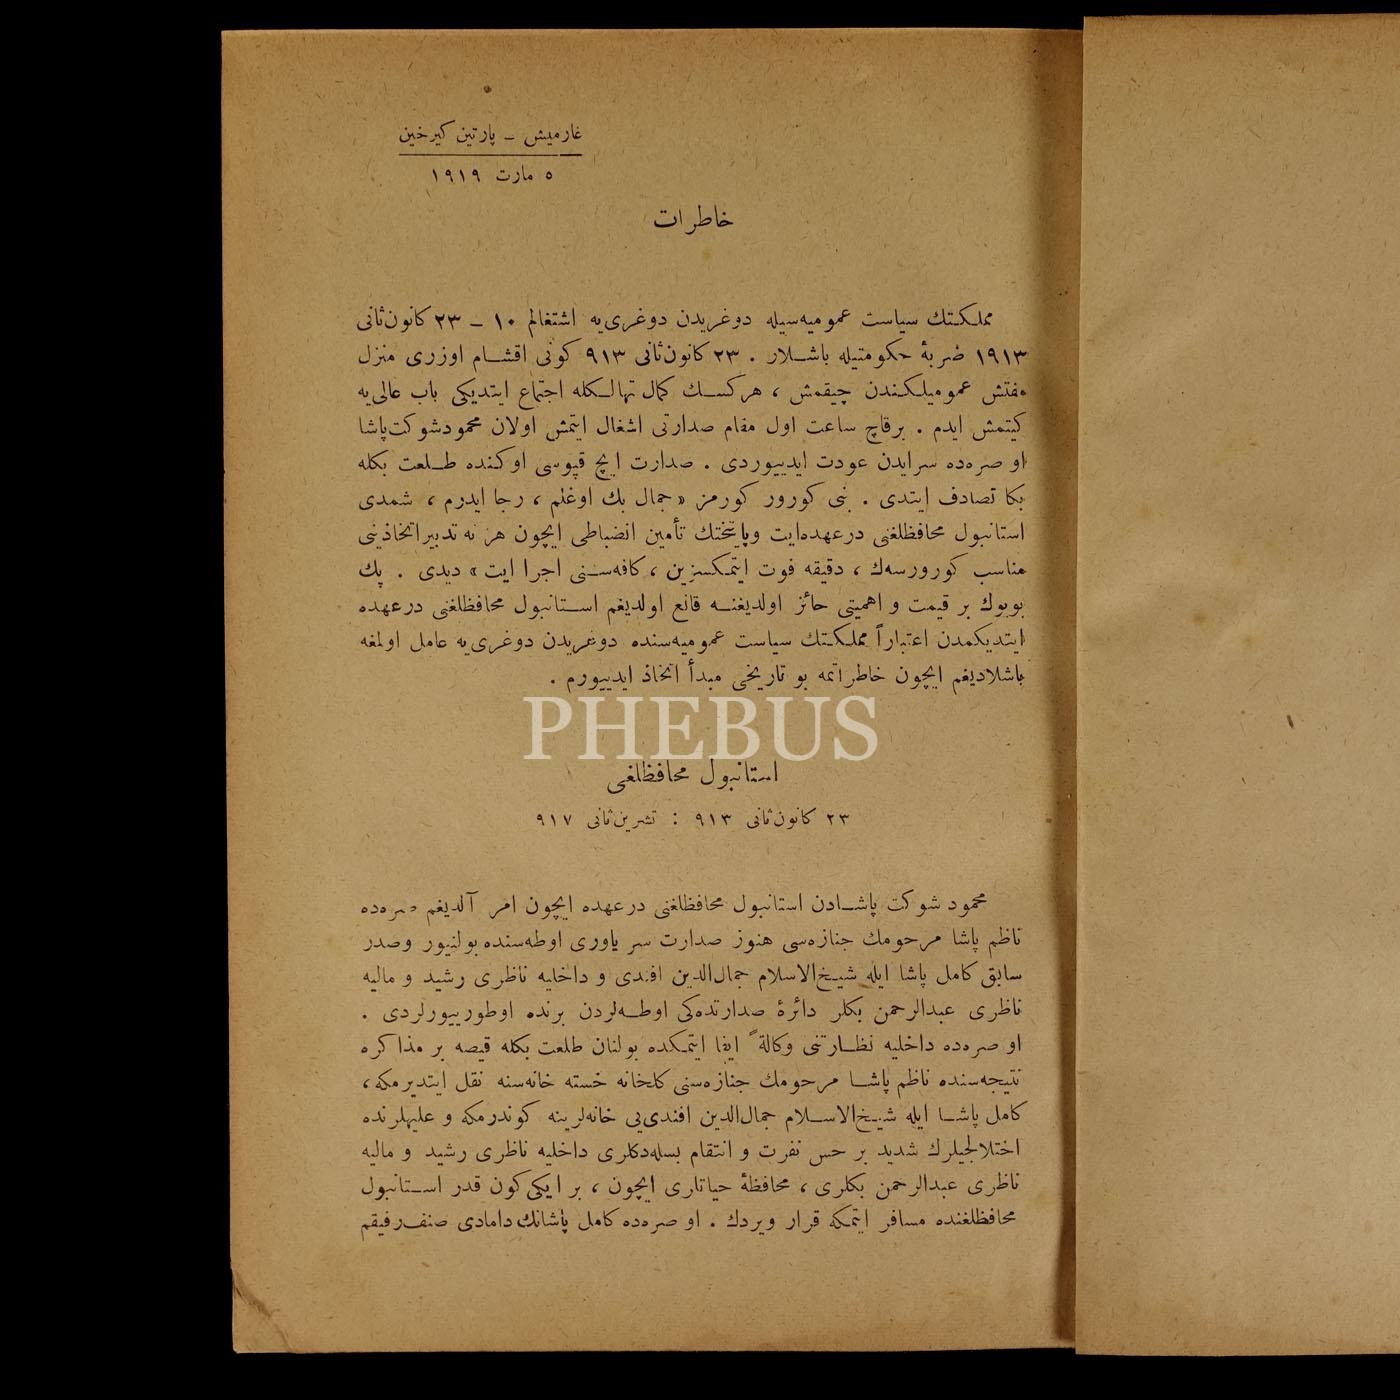 غارميش ـ پارتين كيرخين
٥ مارت ١٩١٩
خاطرات
مملكتك سياست عموميه‌سيله دوغريدن دوغرى‌يه اشتغالم ١٠ ـ ٢٣ كانون‌ثانى
١٩١٣ ضربهٔ حكومتيله باشلار . ٢٣ كانون‌ثانى ٩١٣ كونى اقشام اوزرى منزل
مفتش عموميلكندن چيقمش ، هركسك كمال تهالكله اجتماع ايتديكى باب عالى‌يه
كيتمش ايدم . برقاچ ساعت اول مقام صدارتى اشغال ايتمش اولان محمودشوكت‌پاشا
او صره‌ده سرايدن عودت ايدييوردى . صدارت ايچ قپوسى اوكنده طلعت بكله
بكا تصادف ايتدى . بنى كورور كورمز « جمال بك اوغلم ، رجا ايدرم ، شمدى
استانبول محافظلغنى درعهده‌ايت وپايتختك تأمين انضباطى ايچون هر نه تدبيراتخاذينى
مناسب كورورسه‌ك ، دقيقه فوت ايتمكسزين ، كافه‌سنى اجرا ايت » ديدى . پك
بويوك بر قيمت و اهميتى حائز اولديغنه قانع اولديغم استانبول محافظلغنى درعهده
ايتديكمدن اعتباراً مملكتك سياست عموميه‌سنده دوغريدن دوغرى‌يه عامل اولمغه
باشلاديغم ايچون خاطراتمه بو تاريخى مبدأ اتخاذ ايدييورم .
PHEBUS
استانبول محافظلغى
٢٣ كانون‌ثانى ٩١٣ : تشرين‌ثانى ٩١٧
محمود شوكت پاشادن استانبول محافظلغنى درعهده ايچون امر آلديغم صره‌ده
ناظم پاشا مرحومك جنازه‌سى هنوز صدارت سر ياورى اوطه‌سنده بولنيور وصدر
سابق كامل پاشا ايله شيخ‌الاسلام جمال‌الدين افندى و داخليه ناظرى رشيد و ماليه
ناظرى عبدالرحمن بكلر دائرهٔ صدارتده‌كى اوطه‌لردن برنده اوطورييورلردى .
او صره‌ده داخليه نظارتنى وكالةً ايفا ايتمكده بولنان طلعت بكله قيصه بر مذاكره
نتيجه‌سنده ناظم پاشا مرحومك جنازه‌سنى كلخانه خسته خانه‌سنه نقل ايتديرمكه ،
كامل پاشا ايله شيخ‌الاسلام جمال‌الدين افندى‌يى خانه‌لرينه كوندرمكه و عليهلرنده
اختلالجيلرك شديد بر حس نفرت و انتقام بسله‌دكلرى داخليه ناظرى رشيد و ماليه
ناظرى عبدالرحمن بكلرى ، محافظهٔ حياتلرى ايچون ، بر ايكى كون قدر استانبول
محافظلغنده مسافر ايتمكه قرار ويردك . او صره‌ده كامل پاشانك دامادى صنف‌رفيقم